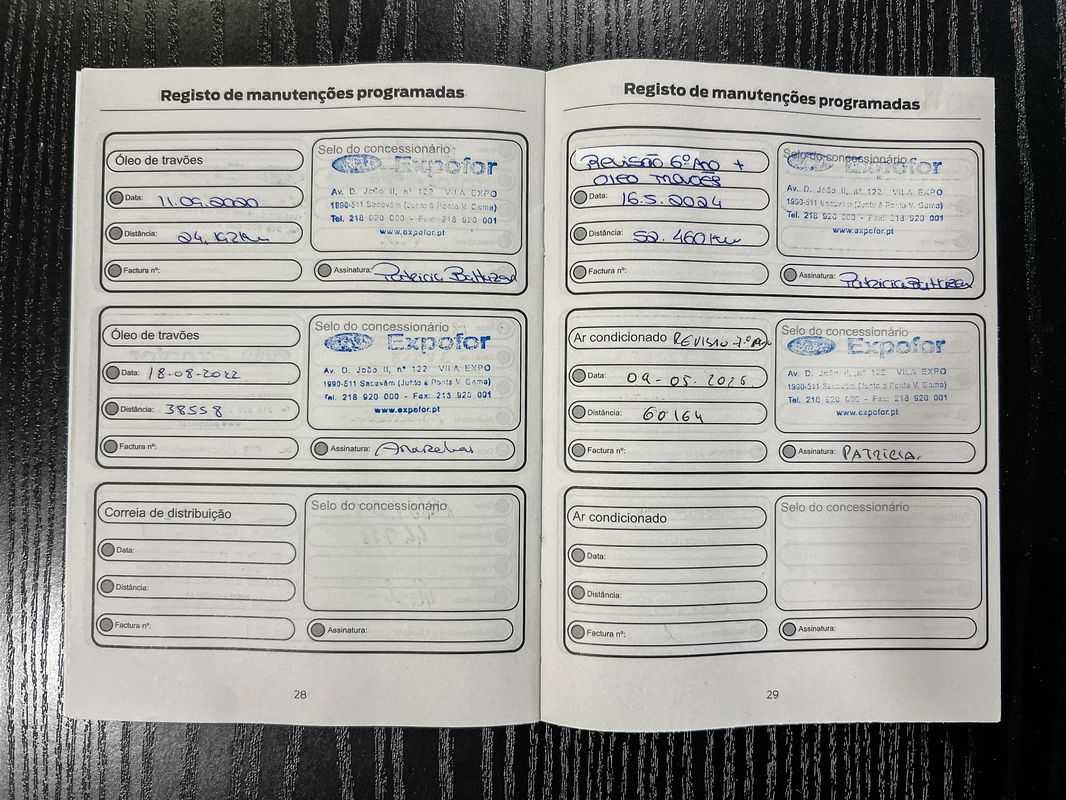 Registo de manutenções programadas
Óleo de travões
Selo do concessionário
Ford Expofor
Data: 11.09.2020
Av. D. João II, nº 122 VILA EXPO
1990-511 Sacavém (Junto à Ponte V. Gama)
Tel. 218 920 000 - Fax: 218 920 001
www.expofor.pt
Distância:
Factura nº:
Assinatura: Patricia
Óleo de travões
Selo do concessionário
Ford Expofor
Data: 18-08-2022
Av. D. João II, nº 122 VILA EXPO
1990-511 Sacavém (Junto à Ponte V. Gama)
Tel. 218 920 000 - Fax: 218 920 001
www.expofor.pt
Distância: 38558
Factura nº:
Assinatura:
Correia de distribuição
Selo do concessionário
Data:
Distância:
Factura nº:
Assinatura:
28
Registo de manutenções programadas
Revisão 6º Ano +
Óleo Travões
Selo do concessionário
Ford Expofor
Data: 16.5.2024
Av. D. João II, nº 122 VILA EXPO
1990-511 Sacavém (Junto à Ponte V. Gama)
Tel. 218 920 000 - Fax: 218 920 001
www.expofor.pt
Distância: 52.460 Km
Factura nº:
Assinatura: Patricia
Ar condicionado REVISÃO 7º Ano
Selo do concessionário
Ford Expofor
Data: 09-05.2025
Av. D. João II, nº 122 VILA EXPO
1990-511 Sacavém (Junto à Ponte V. Gama)
Tel. 218 920 000 - Fax: 218 920 001
www.expofor.pt
Distância: 60164
Factura nº:
Assinatura: PATRICIA.
Ar condicionado
Selo do concessionário
Data:
Distância:
Factura nº:
Assinatura:
29